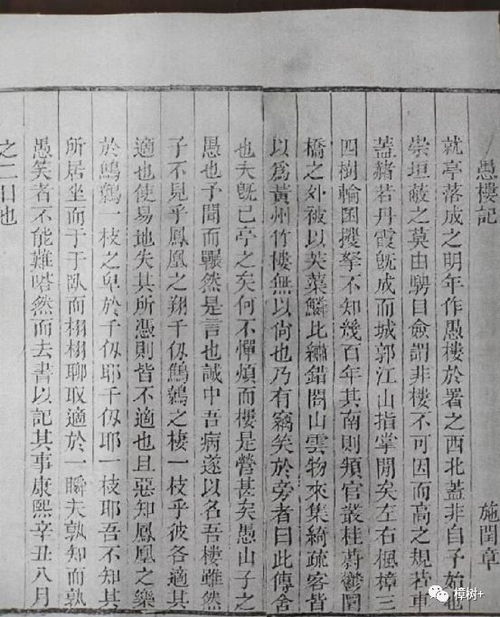 愚樓記 施閏章
就亭落成之明年作愚樓於署之西北蓋非自予始也
崇垣蔽之莫由騁目僉謂非樓不可因而高之規若車
蓋赭若丹霞既成而城郭江山指掌閒矣左右楓樟三
四樹輪囷攫拏不知幾百年其南則頖宮叢桂蔚鬱圜
橋之外被以芙蕖鱗比繡錯閣山雲物來集綺疏客皆
以爲黃州竹樓無以尙也乃有竊笑於旁者曰此傳舍
也夫旣已亭之矣何不憚煩而樓是營甚矣愚山子之
愚也予聞而囅然是言也誠中吾病遂以名吾樓雖然
子不見乎鳳凰之翔千仭鷦鷯之棲一枝乎彼各適其
適也使易地失其所憑則皆不適也且惡知鳳凰之樂
於鷦鷯一枝之卑於千仭耶千仭耶一枝耶吾不知其
所居坐而于于臥而栩栩聊取適於一瞬夫孰知而孰
愚笑者不能難嗒然而去書以記其事康熙辛丑八月
之二日也
樟树+